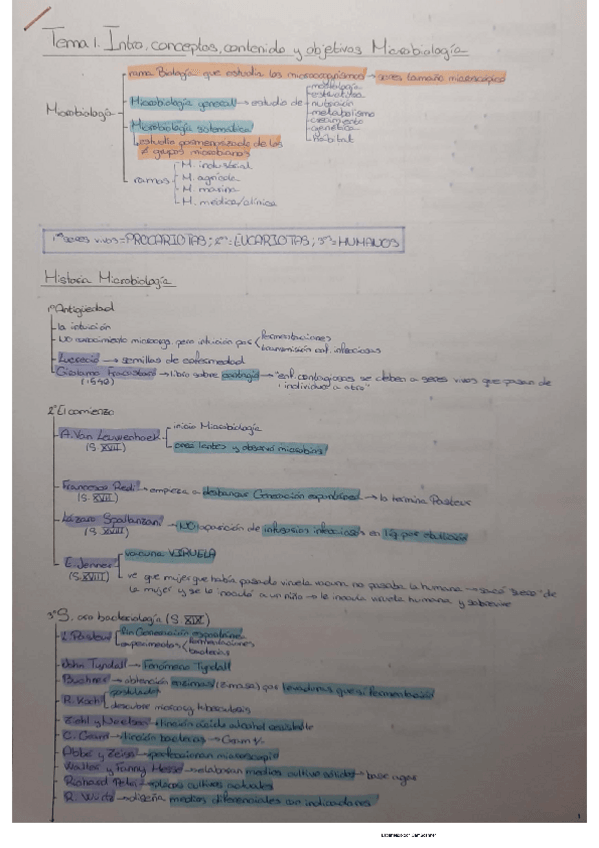 Tema 1. Intro, conceptos, contenido y objetivos Microbiología
Microbiología
rama Biología que estudia los microorganismos → seres tamaño microscópico
Microbiología general → estudio de
morfología
estructura
nutrición
metabolismo
crecimiento
genética
hábitat
Microbiología sistemática
estudia pormenorizado de los
≠ grupos microbianos
ramas
M. industrial
M. agrícola
M. marina
M. médica/clínica
1ºs seres vivos = PROCARIOTAS; 2º = EUCARIOTAS; 3º = HUMANOS
Historia Microbiología
1º Antigüedad
la intuición
NO conocimiento microorg. pero intuición por
fermentaciones
transmisión enf. infecciosas
Lucrecio → semillas de enfermedad
Girolamo Fracastoro → libro sobre contagio → "enf. contagiosas se deben a seres vivos que pasan de
(1546)
individuo a otro"
2º El comienzo
A. Van Leuwenhoek
(S. XVII)
inicio Microbiología
creó lentes y observó microbios
Francesco Redi → empieza a desbancar Generación espontánea → la termina Pasteur
(S. XVII)
Lázaro Spallanzani → NO aparición de infusorios en líq. por ebullición
(S. XVIII)
E. Jenner
(S. XVIII)
vacuna VIRUELA
ve que mujer que había pasado viruela vacuna no pasaba la humana → sacó de
la mujer y se lo inoculó a un niño → le inocula viruela humana y sobrevive
3º S. oro bacteriología (S. XIX)
L. Pasteur
fin Generación espontánea
experimentos
fermentaciones
bacterias
John Tyndall → Fenómeno Tyndall
Buchner → obtención enzimas (zimasa) por levaduras que sí fermentación
R. Koch
postulados
descubre tuberculosis
Ziehl y Neelsen → tinción ácido alcohol resistente
C. Gram → tinción bacterias → Gram +/-
Abbé y Zeiss → perfeccionan microscopio
Walter y Fanny Hesse → elaboran medios cultivo sólidos → base agar
Richard Petri → placas cultivos actuales
R. Wurtz → diseña medios diferenciales con indicadores
1